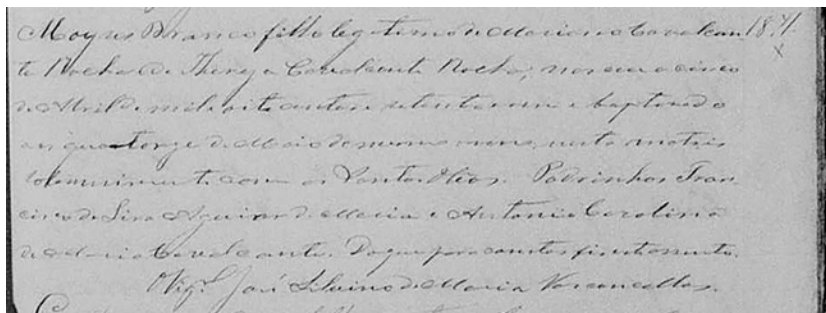 Moyses Branco filho legitimo de Mariano Cavalcan 1871.
te Rocha e de Thereza Cavalcante Rocha; nasceu a cinco
de Abril de mil e oito centos e setenta e um e baptisado
aos quatorze de Maio do mesmo anno, nesta matriz
solemnimente com os Santos Oleos. Padrinhos Fran-
cisco de Lira Aguiar de Maria e Antonia Carolina
de Maria Cavalcante. Do que para constar fiz este assento.
Vigr.º José Silvino de Maria Vasconcellos.